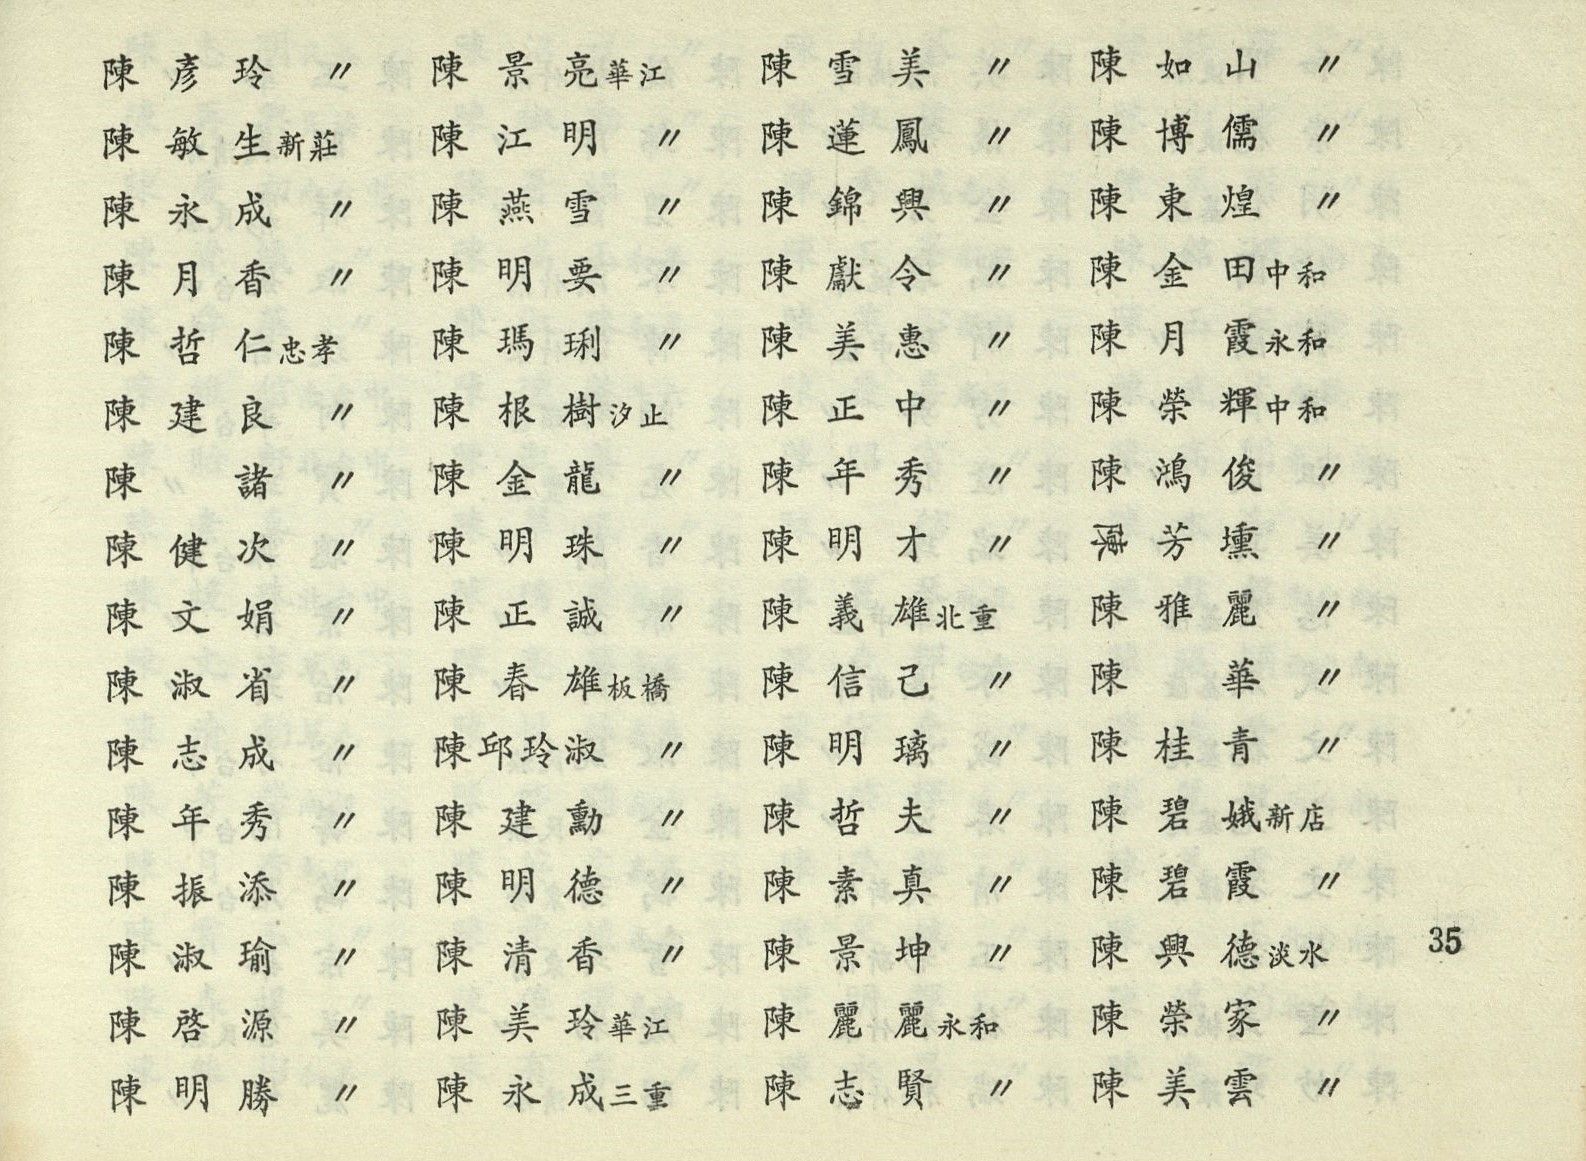 陳彥玲 〃 陳景亮華江 陳雪美 〃 陳如山 〃
陳敏生新莊 陳江明 〃 陳蓮鳳 〃 陳博儒 〃
陳永成 〃 陳燕雪 〃 陳錦興 〃 陳東煌 〃
陳月香 〃 陳明要 〃 陳獻令 〃 陳金田中和
陳哲仁忠孝 陳瑪琍 〃 陳美惠 〃 陳月霞永和
陳建良 〃 陳根樹汐止 陳正中 〃 陳榮輝中和
陳諸 〃 陳金龍 〃 陳年秀 〃 陳鴻俊 〃
陳健次 〃 陳明珠 〃 陳明才 〃 陳芳壎 〃
陳文娟 〃 陳正誠 〃 陳義雄北重 陳雅麗 〃
陳淑省 〃 陳春雄板橋 陳信己 〃 陳華 〃
陳志成 〃 陳邱玲淑 〃 陳明璃 〃 陳桂青 〃
陳年秀 〃 陳建勳 〃 陳哲夫 〃 陳碧娥新店
陳振添 〃 陳明德 〃 陳素真 〃 陳碧霞 〃
陳淑瑜 〃 陳清香 〃 陳景坤 〃 陳興德淡水
陳啓源 〃 陳美玲華江 陳麗麗永和 陳榮家 〃
陳明勝 〃 陳永成三重 陳志賢 〃 陳美雲 〃
35